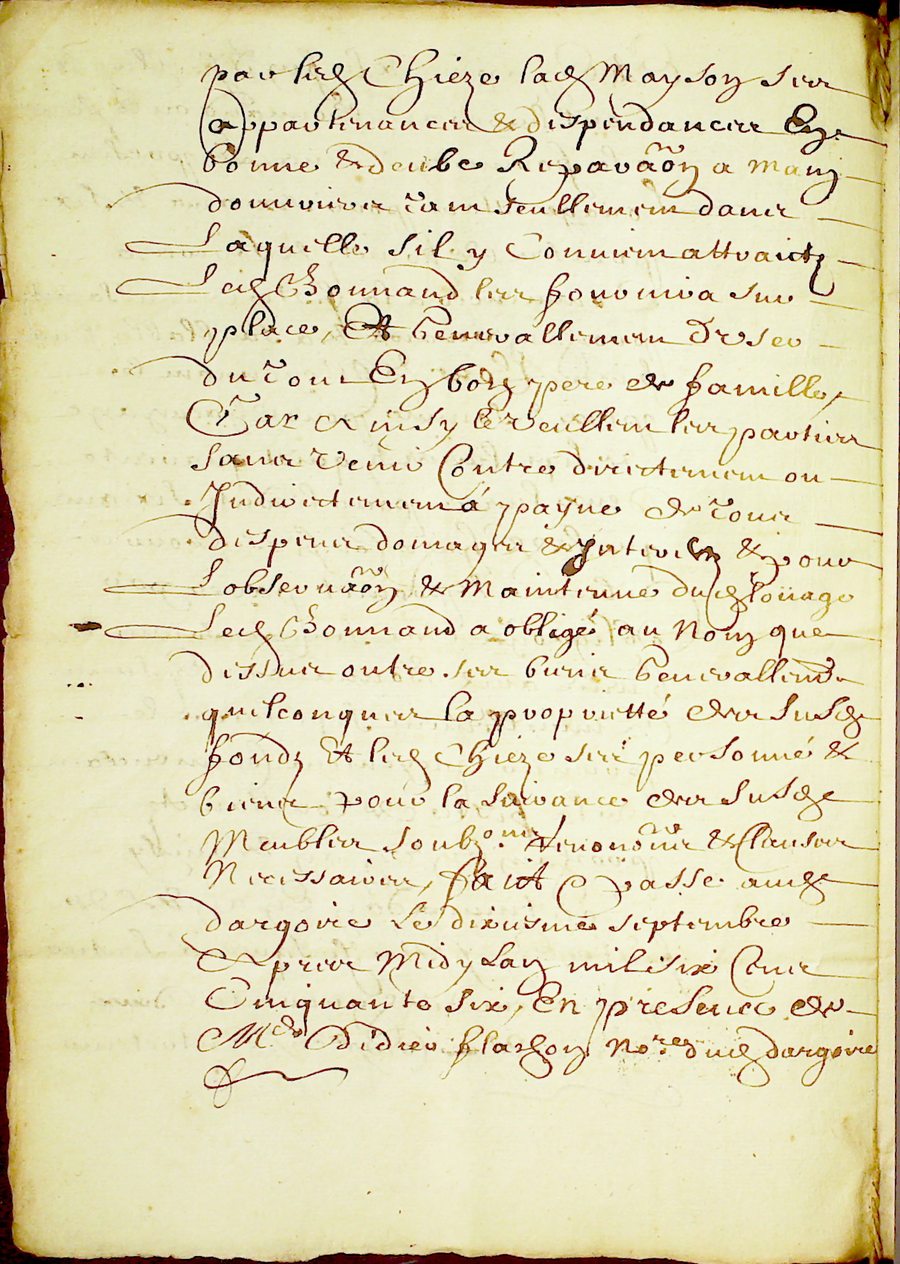 par led Chieze lad Mayson ses
appartenances & despendances En
bonne & deube Reparãon a Main
douurier tant seullement dans
Laquelle sil y Conuient attraictz
Led Bonnand les fournira sur
place, Et generallement Dy ser
du tout En bon pere de famille,
Car Ainsy le veullent les parties
sans venir Contre directement ou
Indirectement á payne de tous
despens domages & Interestz & pour
Lobseruãon & Maintenue dud Louage
Led Bonnand a obligé au Nom que
dessus outre ses biens generallemt
quelconques la proprietté des susd
fondz Et led Chieze ses personne &
biens pour la suivance des susd
Meubles soubz.ons Renonõns & Clauses
Necessaires, faict & passe aud
dargoire Le dixiesme septembre
Apres Midy Lan mil six Cens
Cinquante six, En presence de
Me Didier flachon Nore dud dargoire